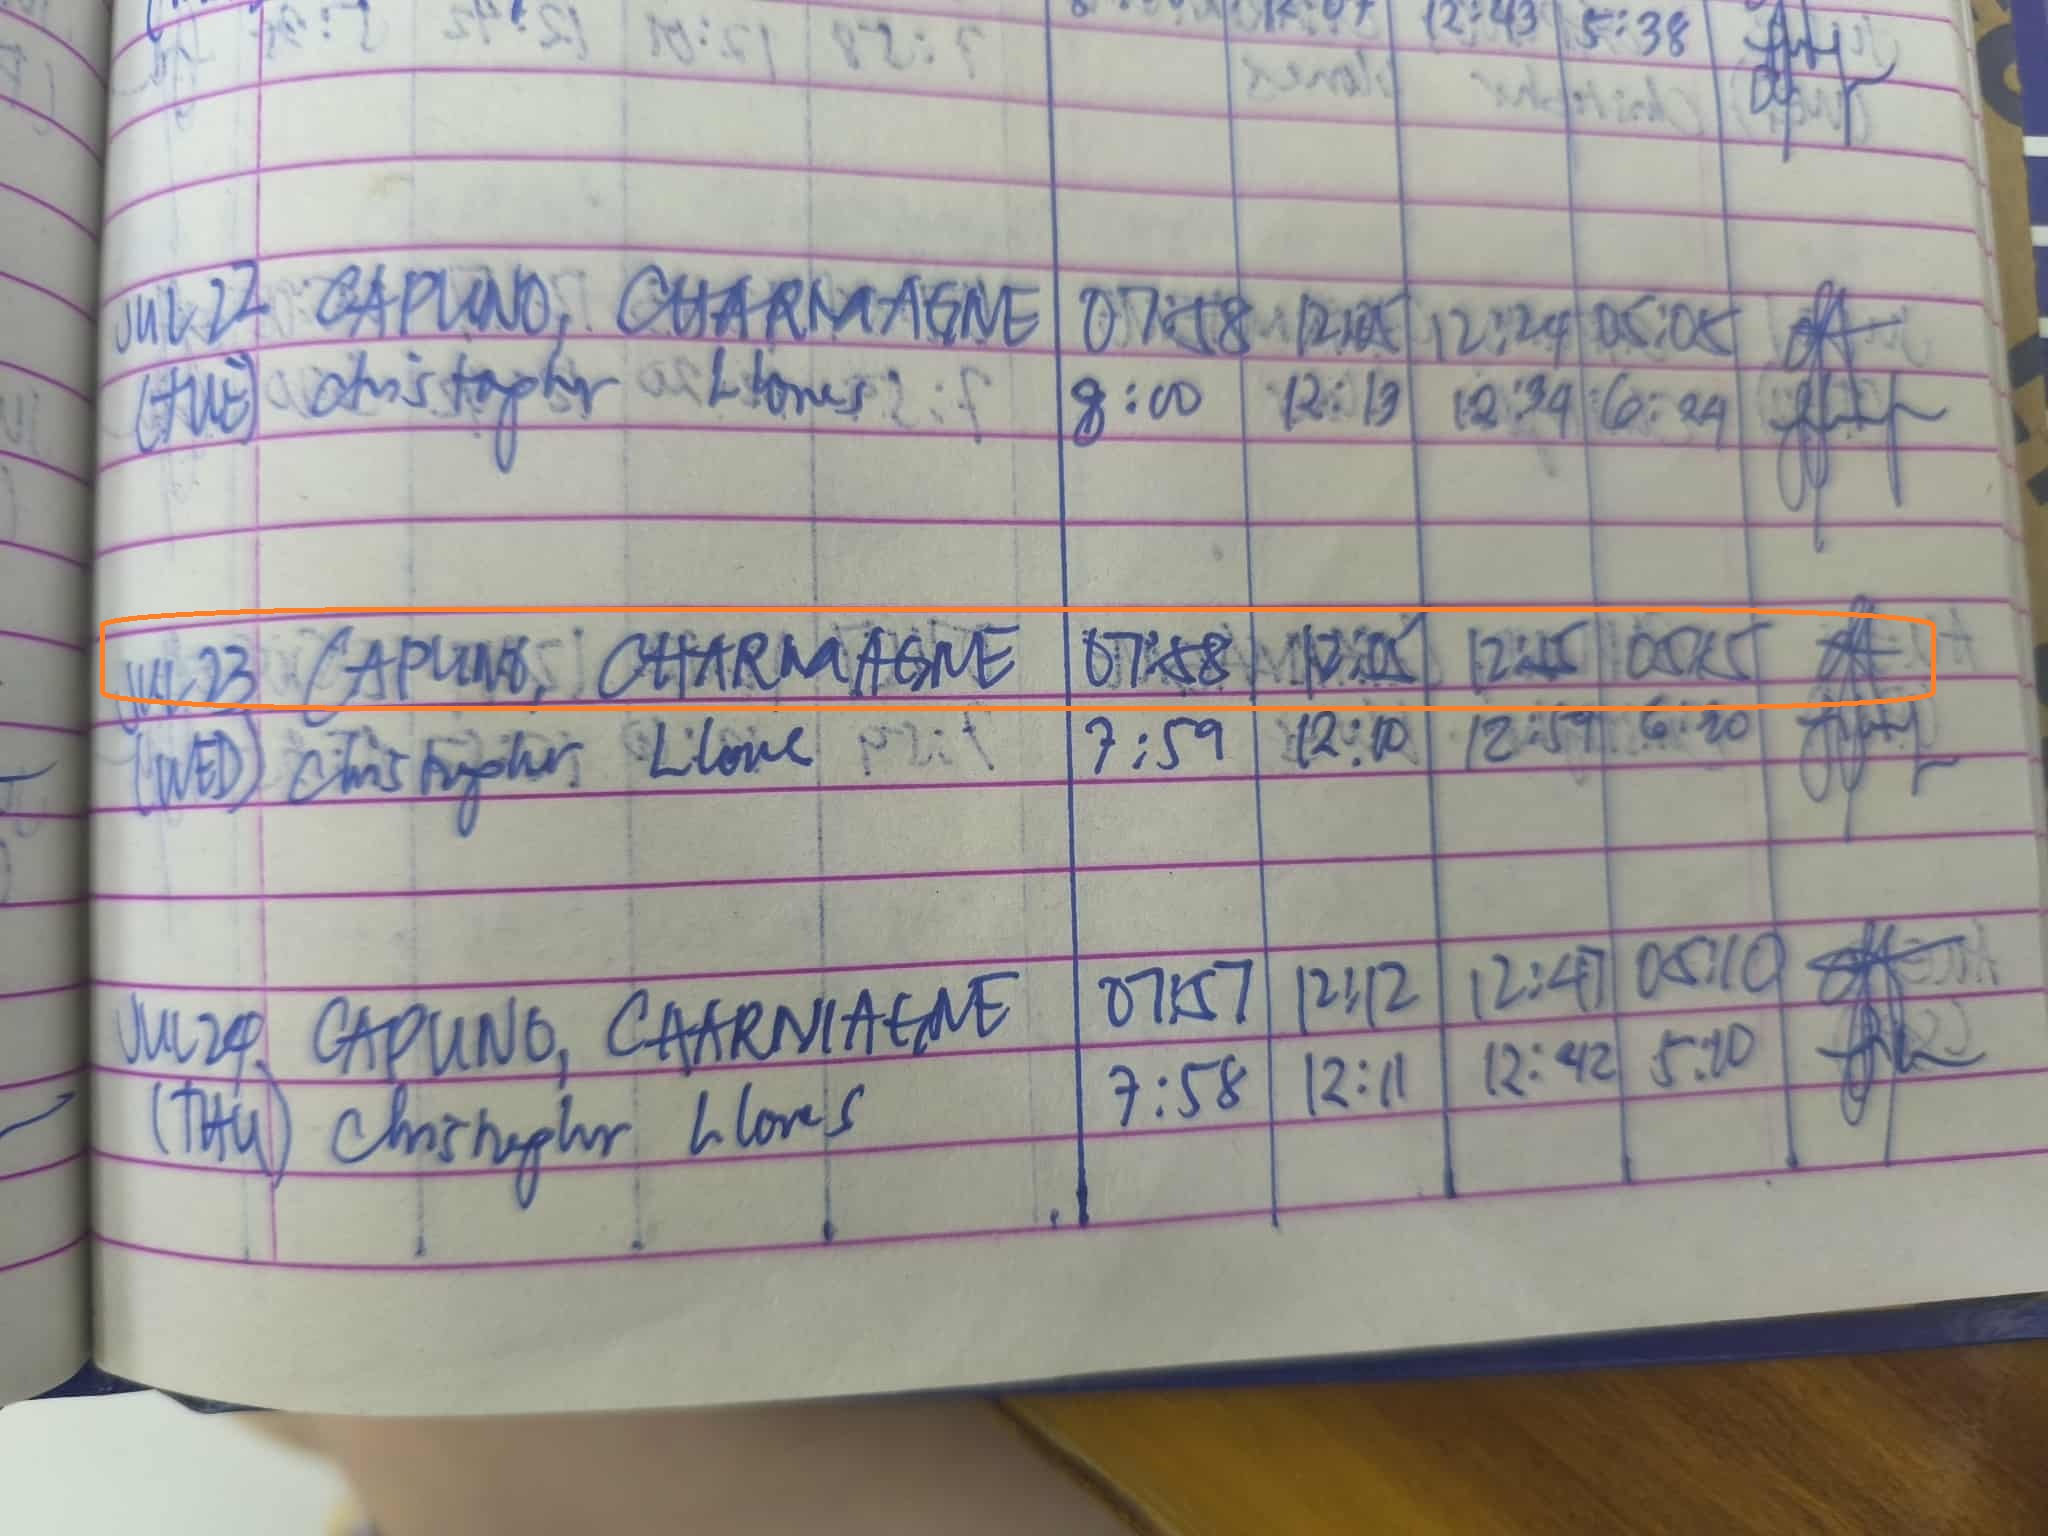 12:43 5:38
JUL 22 CAPUNO, CHARMAGNE 07:58 12:05 12:24 05:05
(TUE) Christopher Llones 8:00 12:13 12:34 6:24
JUL 23 CAPUNO, CHARMAGNE 07:58 12:05 05:15
(WED) Christopher Llone 7:59 12:10 12:59 6:20
JUL 24 CAPUNO, CHARMAGNE 07:57 12:12 12:47 05:10
(THU) Christopher Llones 7:58 12:11 12:42 5:10